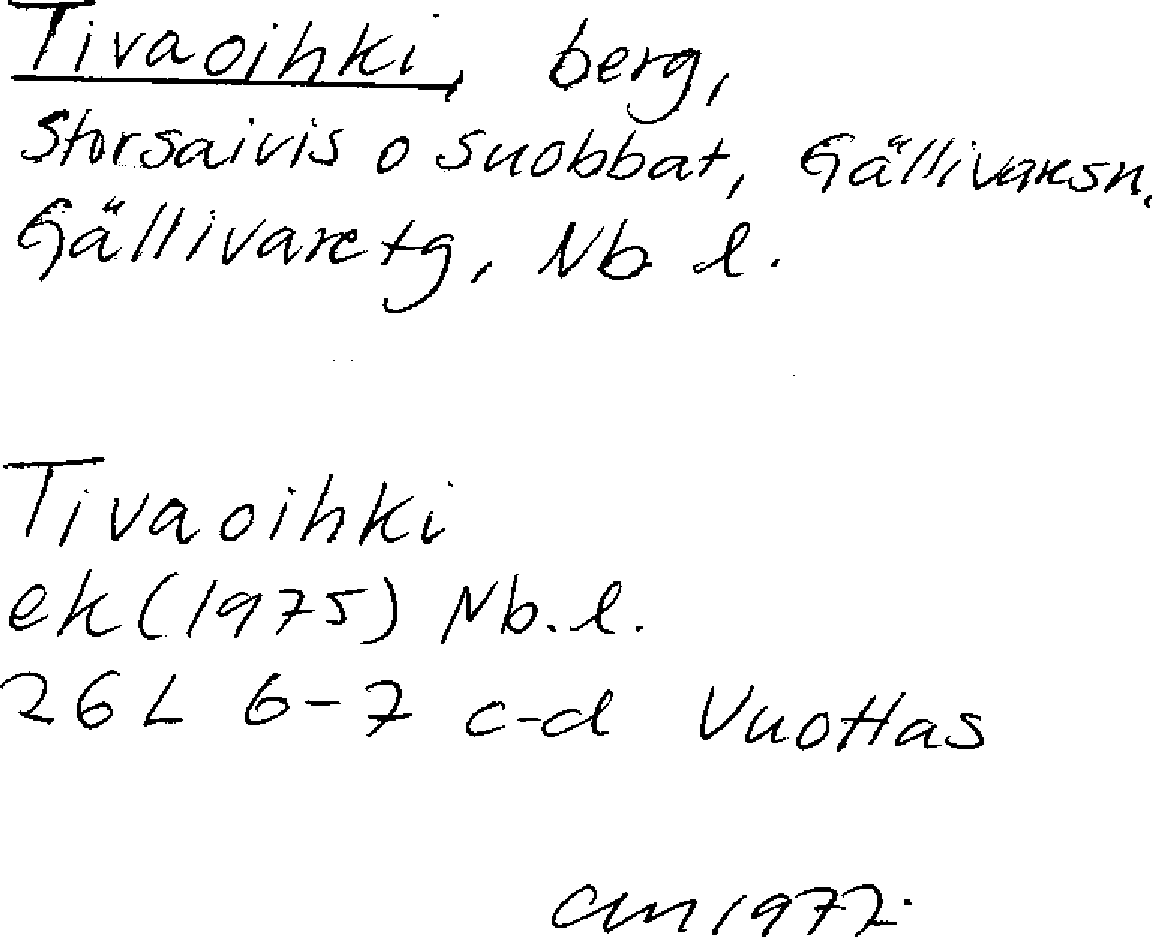 Tivaoihki, berg,
Storsaivis o Suobbat, Gällivaresn.
Gällivaretg, Nb l.
Tivaoihki
ek (1975) Nb. l.
26 L 6-7 c-d Vuottas
1977.